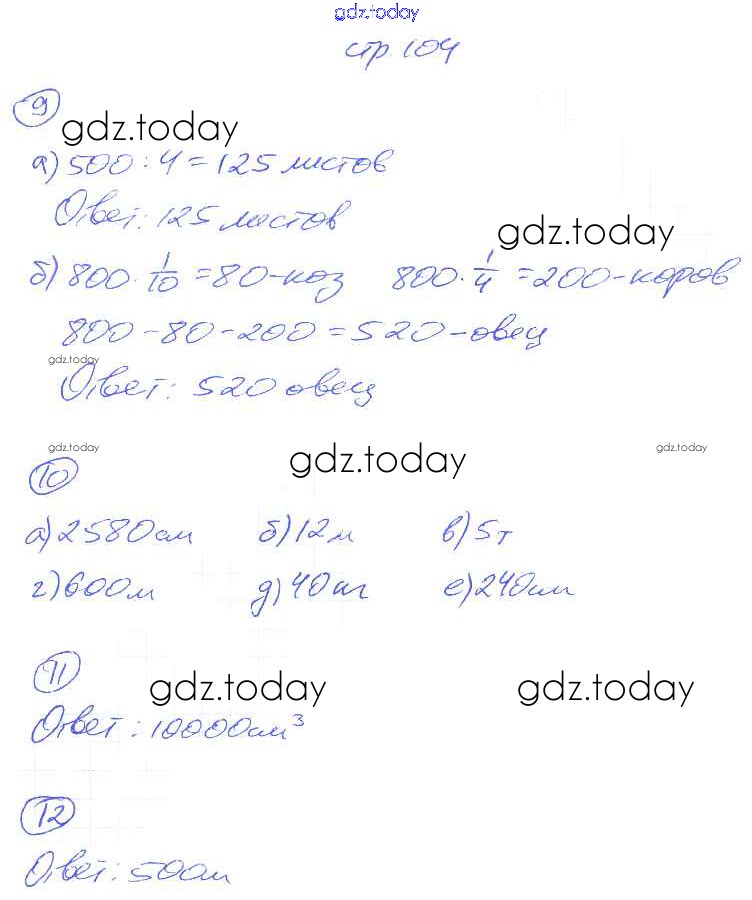 gdz.today
стр. 104
9
gdz.today
а) 500 : 4 = 125 листов
Ответ: 125 листов
gdz.today
б) 800 · 1/10 = 80 - коз 800 · 1/4 = 200 - коров
800 - 80 - 200 = 520 - овец
gdz.today
Ответ: 520 овец
gdz.today gdz.today gdz.today
10
а) 2580 см б) 12 м в) 5 т
г) 600 м д) 40 кг е) 240 см
11
gdz.today gdz.today
Ответ: 10000 см³
12
Ответ: 500 м